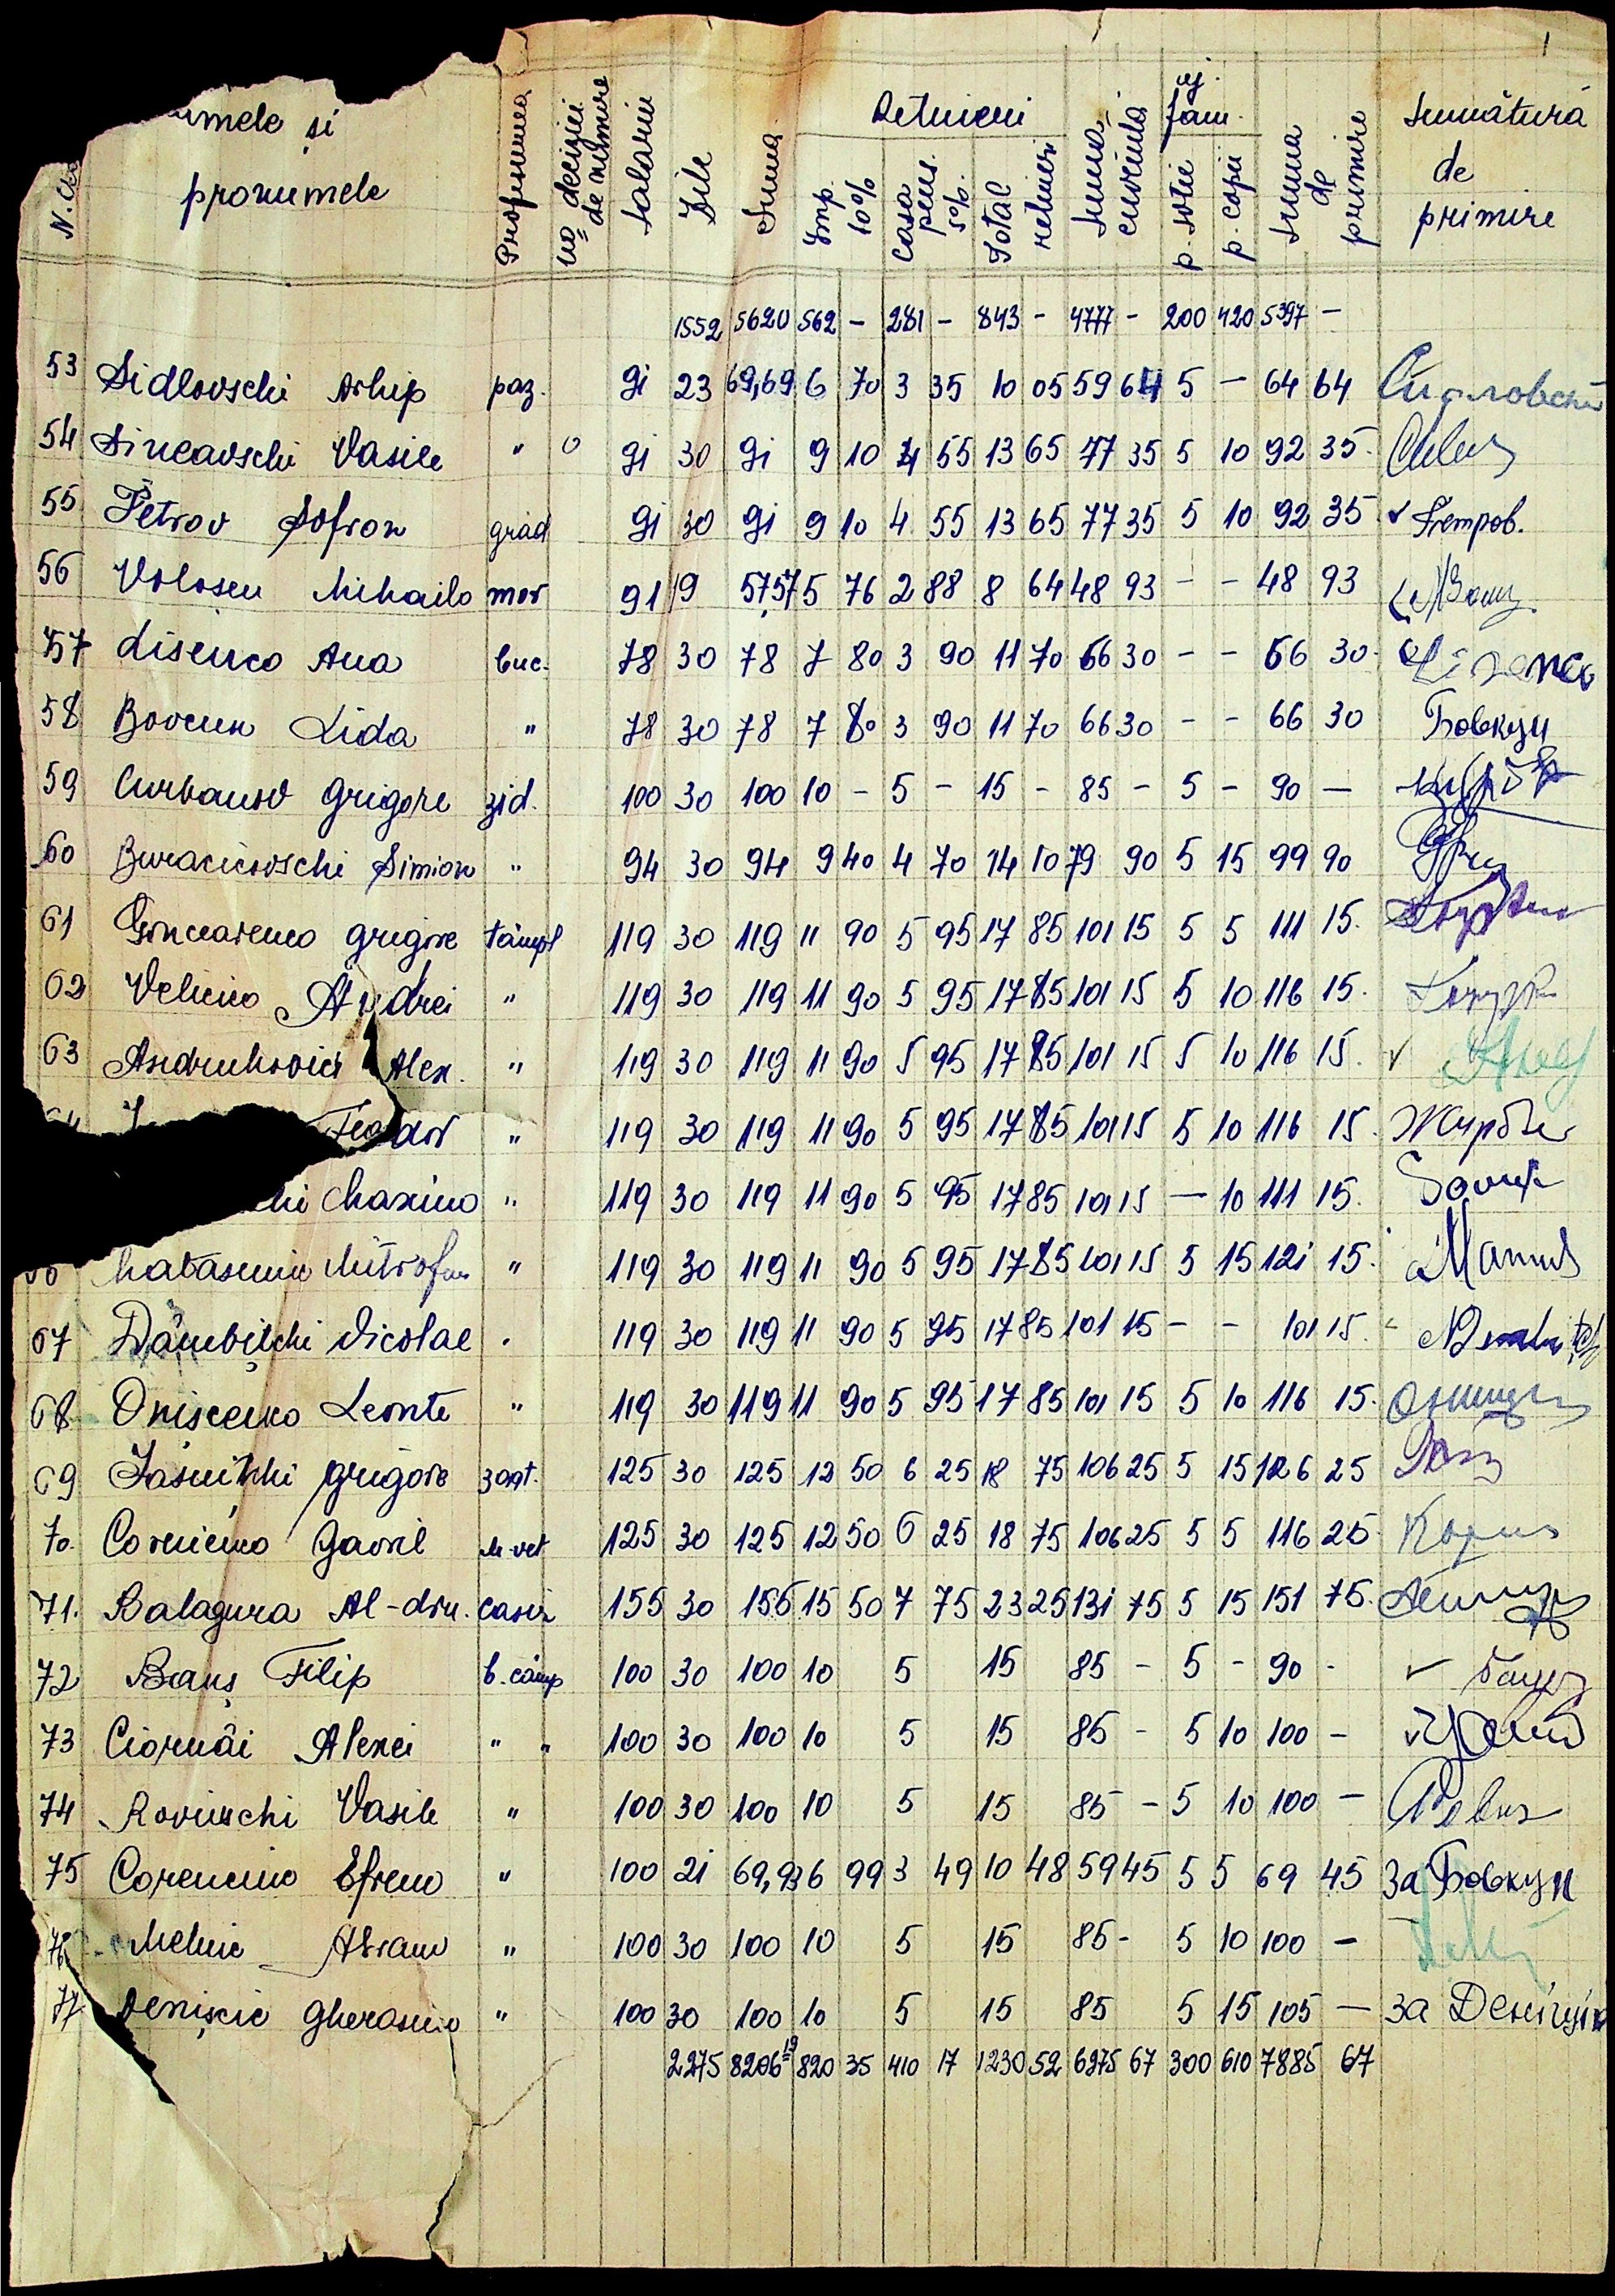 1
N. Crt. umele și pronumele Profesiunea No deciziei de numire Salariu Zile Suma Imp. 10% Casa pens. 5% Total rețineri Suma cuvenită p. soție p. copii Suma de primire
Rețineri aj. fam. Semnătura de primire
1552 5620 562 - 281 - 843 - 4777 - 200 420 5397 -
53 Sidlovschi Arhip paz. 91 23 69,69 6 70 3 35 10 05 59 64 5 - 64 64 Сидловский
54 Sincavschi Vasile " 0 91 30 91 9 10 4 55 13 65 77 35 5 10 92 35
55 Petrov Sofron grăd 91 30 91 9 10 4 55 13 65 77 35 5 10 92 35 ✓ Петров.
56 Volosen Mihailo mor 91 19 57,57 5 76 2 88 8 64 48 93 - - 48 93
57 Lisenco Ana buc. 78 30 78 7 80 3 90 11 70 66 30 - - 66 30
58 Bovcun Lida " 78 30 78 7 80 3 90 11 70 66 30 - - 66 30 Бовкун
59 Curbanov Grigore zid. 100 30 100 10 - 5 - 15 - 85 - 5 - 90 -
60 Buracicovschi Simion " 94 30 94 9 40 4 70 14 10 79 90 5 15 99 90
61 Goncearenco Grigore tâmpl 119 30 119 11 90 5 95 17 85 101 15 5 5 111 15.
62 Velicico Andrei " 119 30 119 11 90 5 95 17 85 101 15 5 10 116 15.
63 Andruhovici Alex. " 119 30 119 11 90 5 95 17 85 101 15 5 10 116 15. ✓
Feodor " 119 30 119 11 90 5 95 17 85 101 15 5 10 116 15.
chi Maxim " 119 30 119 11 90 5 95 17 85 101 15 - 10 111 15.
Matasniuc Mitrofan " 119 30 119 11 90 5 95 17 85 101 15 5 15 121 15.
67 Dâmbițchi Nicolae " 119 30 119 11 90 5 95 17 85 101 15 - - 101 15.
68 Onișcenco Leonte " 119 30 119 11 90 5 95 17 85 101 15 5 10 116 15.
69 Iasnițchi Grigore zoot. 125 30 125 12 50 6 25 18 75 106 25 5 15 126 25
70. Cornienco Gavril M-vet 125 30 125 12 50 6 25 18 75 106 25 5 5 116 25
71. Balagura Al-dru. casier 155 30 155 15 50 7 75 23 25 131 75 5 15 151 75.
72 Banș Filip b. câmp 100 30 100 10 5 15 85 - 5 - 90 - ✓
73 Ciornâi Alexei " " 100 30 100 10 5 15 85 - 5 10 100 - ✓
74 Rovinschi Vasile " 100 30 100 10 5 15 85 - 5 10 100 -
75 Corencino Efrem " 100 21 69,93 6 99 3 49 10 48 59 45 5 5 69 45 За Бовкун
76 Melnic Avram " 100 30 100 10 5 15 85 - 5 10 100 -
77 Denișcic Gherasim " 100 30 100 10 5 15 85 5 15 105 - За
2275 8206 19 820 35 410 17 1230 52 6975 67 300 610 7885 67